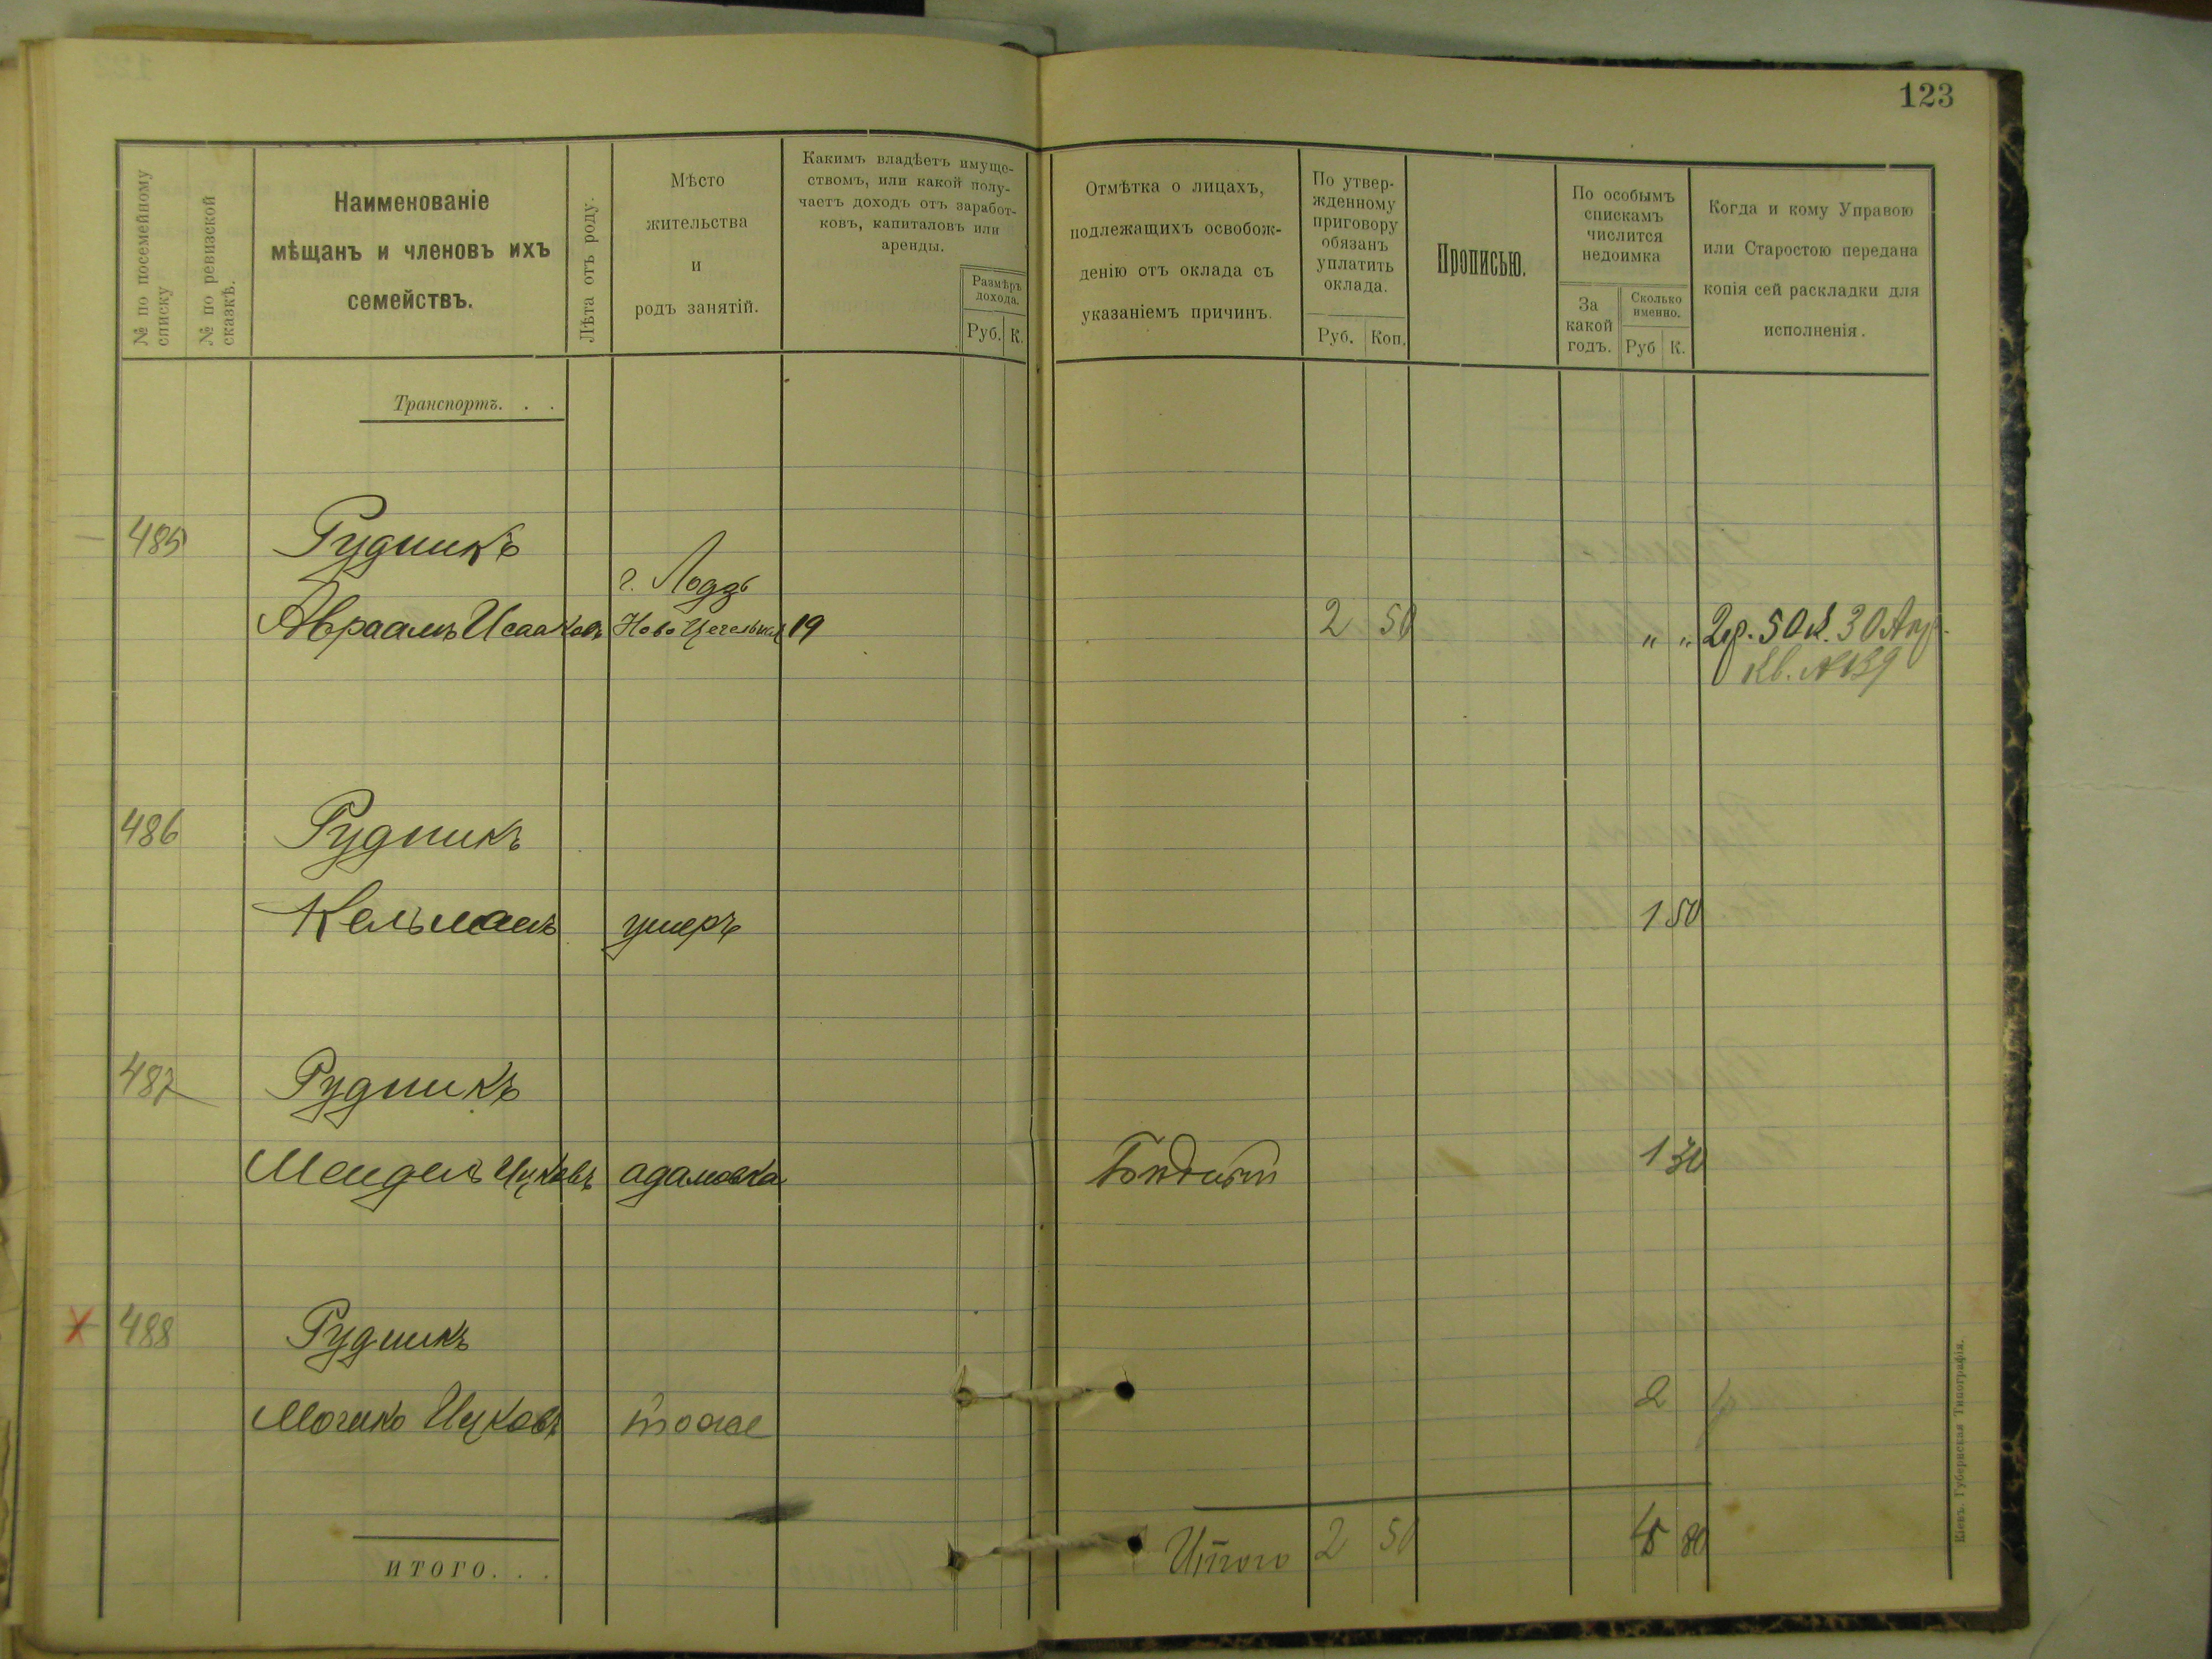 123
№ по посемейному списку
№ по ревизской сказкѣ.
Наименованіе
мѣщанъ и членовъ ихъ
семействъ.
Лѣта отъ роду.
Мѣсто
жительства
и
родъ занятій.
Какимъ владѣетъ имуще-
ствомъ, или какой полу-
чаетъ доходъ отъ заработ-
ковъ, капиталовъ или
аренды.
Размѣръ
дохода.
Руб. К.
Отмѣтка о лицахъ,
подлежащихъ освобож-
денію отъ оклада съ
указаніемъ причинъ.
По утвер-
жденному
приговору
обязанъ
уплатить
оклада.
Руб. Коп.
Прописью.
По особымъ
спискамъ
числится
недоимка
За
какой
годъ.
Сколько
именно.
Руб К.
Когда и кому Управою
или Старостою передана
копія сей раскладки для
исполненія.
Транспортъ. . .
485 Рудникъ
г. Лодзь
Авраамъ Исааковъ Ново 19 2 50 " " 2р. 50 к. 30 Апр.
Кв. №
486 Рудникъ
Кельманъ умеръ 1 50
487 Рудникъ
Мендель Ицковъ адамовка Бѣдный 1 30
488 Рудникъ
Мошко Ицковъ тоже 2
Итого 2 50 4 80
ИТОГО. . .
Кіевъ. Губернская Типографія.